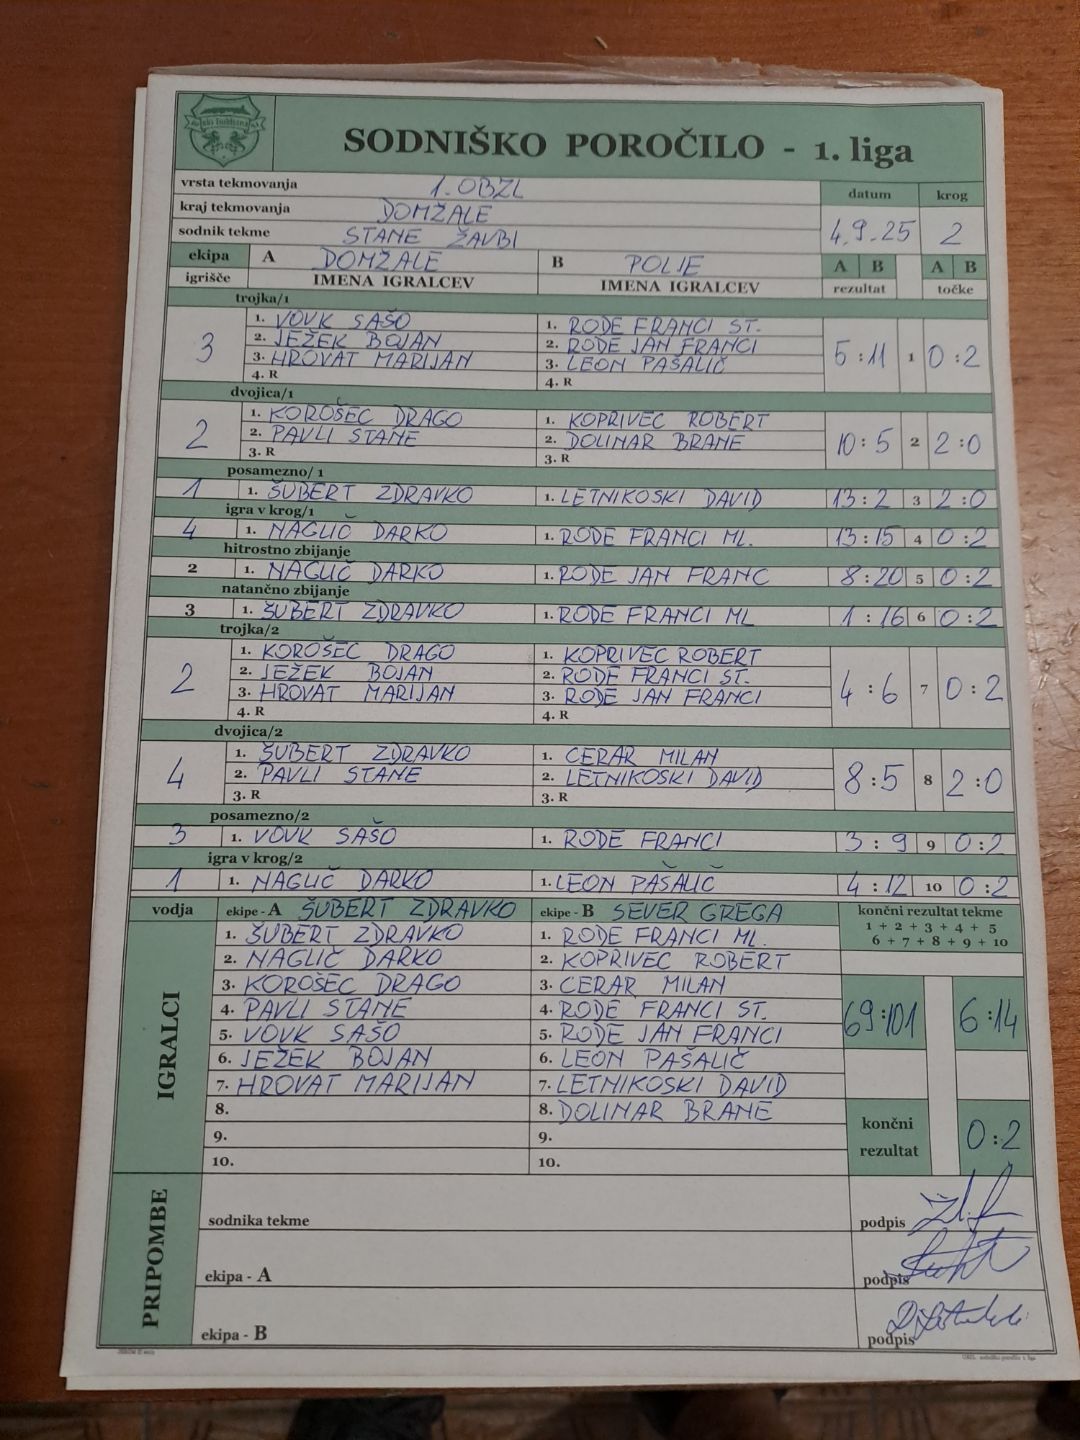 SODNIŠKO POROČILO - 1. liga
vrsta tekmovanja 1. OBZL datum krog
kraj tekmovanja DOMŽALE
sodnik tekme STANE ŽAVBI 4.9.25 2
ekipa A DOMŽALE B POLJE A B A B
igrišče IMENA IGRALCEV IMENA IGRALCEV rezultat točke
trojka/1
3 5:11 1 0:2
1. VOVK SAŠO 1. RODE FRANCI ST.
2. JEŽEK BOJAN 2. RODE JAN FRANCI
3. HROVAT MARIJAN 3. LEON PAŠALIČ
4. R 4. R
dvojica/1
2 10:5 2 2:0
1. KOROŠEC DRAGO 1. KOPRIVEC ROBERT
2. PAVLI STANE 2. DOLINAR BRANE
3. R 3. R
posamezno/1
1 1. ŠUBERT ZDRAVKO 1. LETNIKOSKI DAVID 13:2 3 2:0
igra v krog/1
4 1. NAGLIČ DARKO 1. RODE FRANCI ML. 13:15 4 0:2
hitrostno zbijanje
2 1. NAGLIČ DARKO 1. RODE JAN FRANC 8:20 5 0:2
natančno zbijanje
3 1. ŠUBERT ZDRAVKO 1. RODE FRANCI ML 1:16 6 0:2
trojka/2
2 4:6 7 0:2
1. KOROŠEC DRAGO 1. KOPRIVEC ROBERT
2. JEŽEK BOJAN 2. RODE FRANCI ST.
3. HROVAT MARIJAN 3. RODE JAN FRANCI
4. R 4. R
dvojica/2
4 8:5 8 2:0
1. ŠUBERT ZDRAVKO 1. CERAR MILAN
2. PAVLI STANE 2. LETNIKOSKI DAVID
3. R 3. R
posamezno/2
3 1. VOVK SAŠO 1. RODE FRANCI 3:9 9 0:2
igra v krog/2
1 1. NAGLIČ DARKO 1. LEON PAŠALIČ 4:12 10 0:2
vodja ekipe - A ŠUBERT ZDRAVKO ekipe - B SEVER GREGA končni rezultat tekme
1 + 2 + 3 + 4 + 5
6 + 7 + 8 + 9 + 10
IGRALCI
1. ŠUBERT ZDRAVKO 1. RODE FRANCI ML.
2. NAGLIČ DARKO 2. KOPRIVEC ROBERT
3. KOROŠEC DRAGO 3. CERAR MILAN
4. PAVLI STANE 4. RODE FRANCI ST. 69:101 6:14
5. VOVK SAŠO 5. RODE JAN FRANCI
6. JEŽEK BOJAN 6. LEON PAŠALIČ
7. HROVAT MARIJAN 7. LETNIKOSKI DAVID
8. 8. DOLINAR BRANE
9. 9.
10. 10.
končni rezultat 0:2
PRIPOMBE
sodnika tekme podpis
ekipa - A podpis
ekipa - B podpis